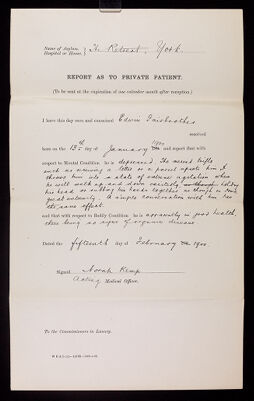 Name of Asylum,
Hospital or House. } The Retreat, York.
REPORT AS TO PRIVATE PATIENT.
(To be sent at the expiration of one calendar month after reception.)
I have this day seen and examined Edwin Fairbrother
received
here on the 13th day of January 1900 and report that with
respect to Mental Condition he is depressed. The merest trifle
such as receiving a letter or a parcel upsets him &
throws him into a state of extreme agitation when
he will walk up and down restlessly holding
his head or rubbing his hands together as though in
great extremity. A simple conversation with him has
the same effect.
and that with respect to Bodily Condition he is apparently in good health,
there being no signs of organic disease
Dated the fifteenth day of February 1900
Signed Norah Kemp
Acting Medical Officer.
To the Commissioners in Lunacy.